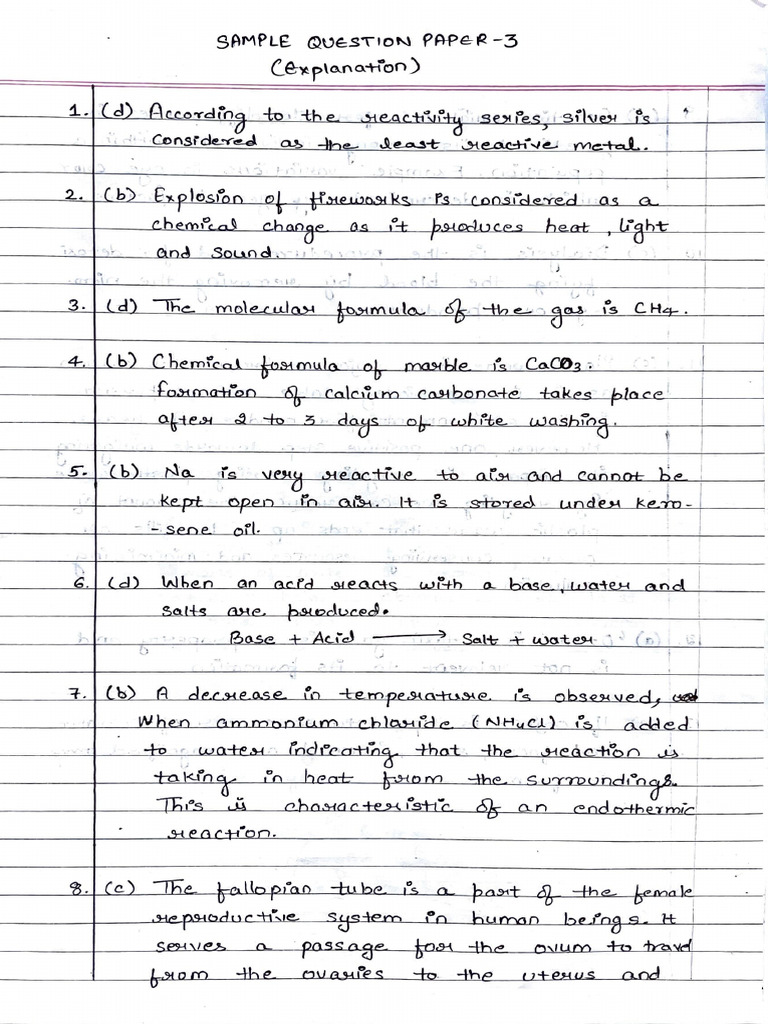 SAMPLE QUESTION PAPER-3
(Explanation)
1. (d) According to the reactivity series, silver is
considered as the least reactive metal.
2. (b) Explosion of fireworks is considered as a
chemical change as it produces heat, light
and sound.
3. (d) The molecular formula of the gas is CH4.
4. (b) Chemical formula of marble is CaCO3.
formation of calcium carbonate takes place
after 2 to 3 days of white washing.
5. (b) Na is very reactive to air and cannot be
kept open in air. It is stored under kero-
-sene oil.
6. (d) When an acid reacts with a base, water and
salts are produced.
Base + Acid ⟶ Salt + water
7. (b) A decrease in temperature is observed,
When ammonium chloride (NH4Cl) is added
to water indicating that the reaction is
taking in heat from the surroundings.
This is characteristic of an endothermic
reaction.
8. (c) The fallopian tube is a part of the female
reproductive system in human beings. It
serves a passage for the ovum to travel
from the ovaries to the uterus and